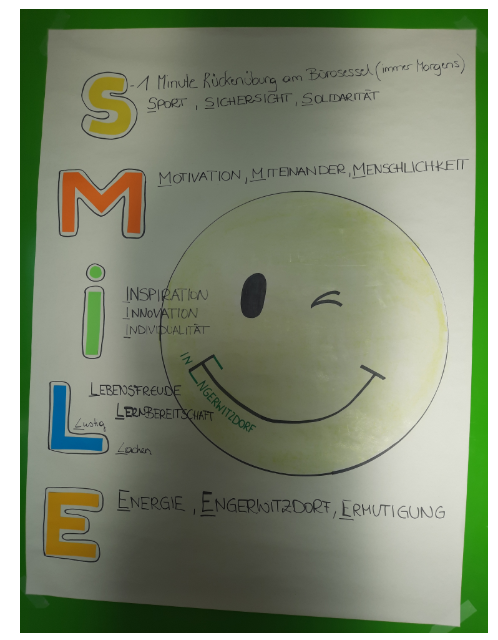 S - 1 Minute Rückenübung am Bürosessel (immer Morgens)
SPORT, SICHERSICHT, SOLIDARITÄT
M MOTIVATION, MITEINANDER, MENSCHLICHKEIT
i INSPIRATION
INNOVATION
INDIVIDUALITÄT
IN ENGERWITZDORF
L LEBENSFREUDE
LERNBEREITSCHAFT
Lustig
Lachen
E ENERGIE, ENGERWITZDORF, ERMUTIGUNG